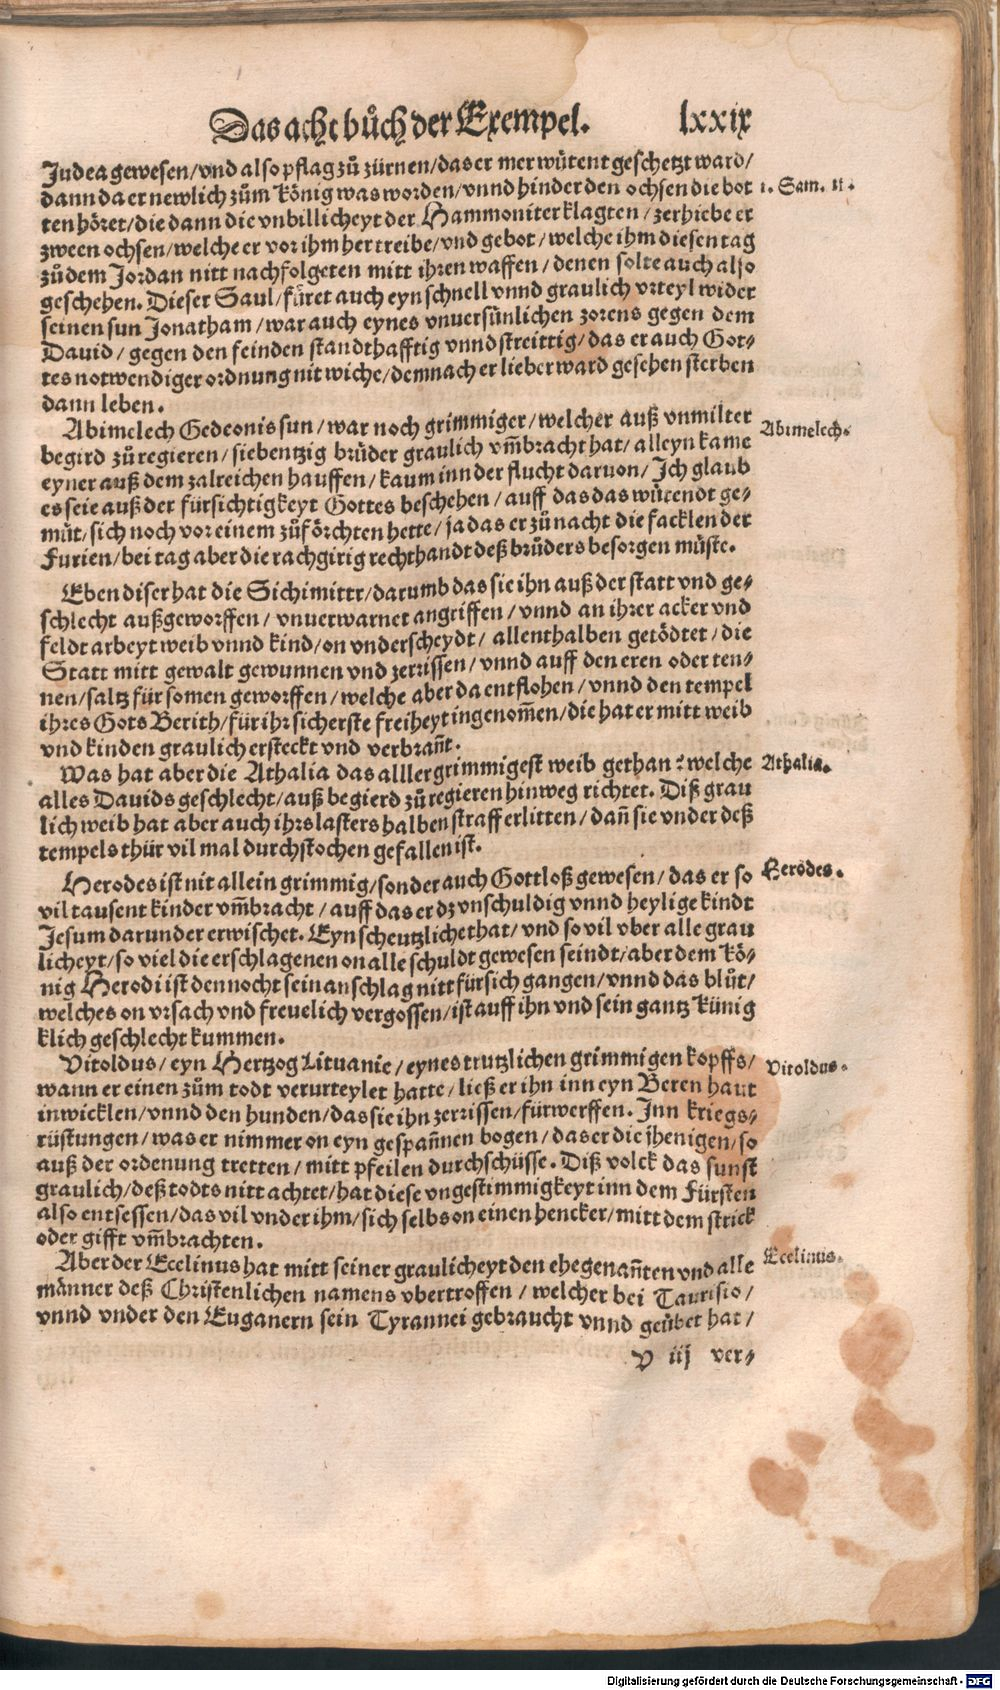 Das acht bůch der Exempel. lxxix
Judea gewesen/vnd also pflag zů zürnen/das er mer wütent geschetzt ward/
dann da er newlich zům König was worden/vnnd hinder den ochsen die bot
1. Sam. 11.
ten höret/die dann die vnbillicheyt der Hammoniter klagten/zerhiebe er
zween ochsen/welche er vor ihm her treibe/vnd gebot/welche ihm diesen tag
zů dem Jordan nitt nachfolgeten mitt ihren waffen/denen solte auch also
geschehen. Dieser Saul/füret auch eyn schnell vnnd graulich vrteyl wider
seinen sun Jonatham/war auch eynes vnuersünlichen zorens gegen dem
Dauid/gegen den feinden standthafftig vnnd streittig/das er auch Got-
tes notwendiger ordnung nit wiche/demnach er lieber ward gesehen sterben
dann leben.
Abimelech Gedeonis sun/war noch grimmiger/welcher auß vnmilter
Abimelech.
begird zů regieren/siebentzig brůder graulich vm̃bracht hat/alleyn kame
eyner auß dem zalreichen hauffen/kaum inn der flucht daruon/Ich glaub
es seie auß der fürsichtigkeyt Gottes beschehen/auff das das wütendt ge-
můt/sich noch vor einem zů förchten hette/ja das er zů nacht die facklen der
Furien/bei tag aber die rachgirig rechthandt deß brůders besorgen můste.
Eben diser hat die Sichimittr/darumb das sie ihn auß der statt vnd ge-
schlecht außgeworffen/vnuerwarnet angriffen/vnnd an ihrer acker vnd
feldt arbeyt weib vnnd kind/on vnderscheydt/allenthalben getödtet/die
Statt mitt gewalt gewunnen vnd zerrissen/vnnd auff den eren oder ten-
nen/saltz für somen geworffen/welche aber da entflohen/vnnd den tempel
ihres Gots Berith/für ihr sicherste freiheyt ingenom̃en/die hat er mitt weib
vnd kinden graulich ersteckt vnd verbrañt.
Was hat aber die Athalia das alllergrimmigest weib gethan? welche
Athalia.
alles Dauids geschlecht/auß begierd zů regieren hinweg richtet. Diß grau
lich weib hat aber auch ihrs lasters halben straff erlitten/dañ sie vnder deß
tempels thür vil mal durchstochen gefallen ist.
Herodes ist nit allein grimmig/sonder auch Gottloß gewesen/das er so
Herodes.
vil tausent kinder vm̃bracht/auff das er dz vnschuldig vnnd heylige kindt
Jesum darunder erwischet. Eyn scheutzliche that/vnd so vil vber alle grau
licheyt/so viel die erschlagenen on alle schuldt gewesen seindt/aber dem Kö-
nig Herodi ist dennocht sein anschlag nitt fürsich gangen/vnnd das blůt/
welches on vrsach vnd freuelich vergossen/ist auff ihn vnd sein gantz Künig
klich geschlecht kummen.
Vitoldus/eyn Hertzog Lituanie/eynes trutzlichen grimmigen kopffs/
Vitoldus.
wann er einen zům todt verurteylet hatte/ließ er ihn inn eyn Beren haut
inwicklen/vnnd den hunden/das sie ihn zerrissen/fürwerffen. Inn kriegs-
rüstungen/was er nimmer on eyn gespañnen bogen/das er die jhenigen/so
auß der ordenung tretten/mitt pfeilen durchschüsse. Diß volck das sunst
graulich/deß todts nitt achtet/hat diese vngestimmigkeyt inn dem Fürsten
also entsessen/das vil vnder ihm/sich selbs on einen hencker/mitt dem strick
oder gifft vm̃brachten.
Aber der Ecelinus hat mitt seiner graulicheyt den ehegenañten vnd alle
Ecelinus.
männer deß Christenlichen namens vbertroffen/welcher bei Taurisio/
vnnd vnder den Euganern sein Tyrannei gebraucht vnnd geübet hat/
V iij ver-
Digitalisierung gefördert durch die Deutsche Forschungsgemeinschaft - DFG